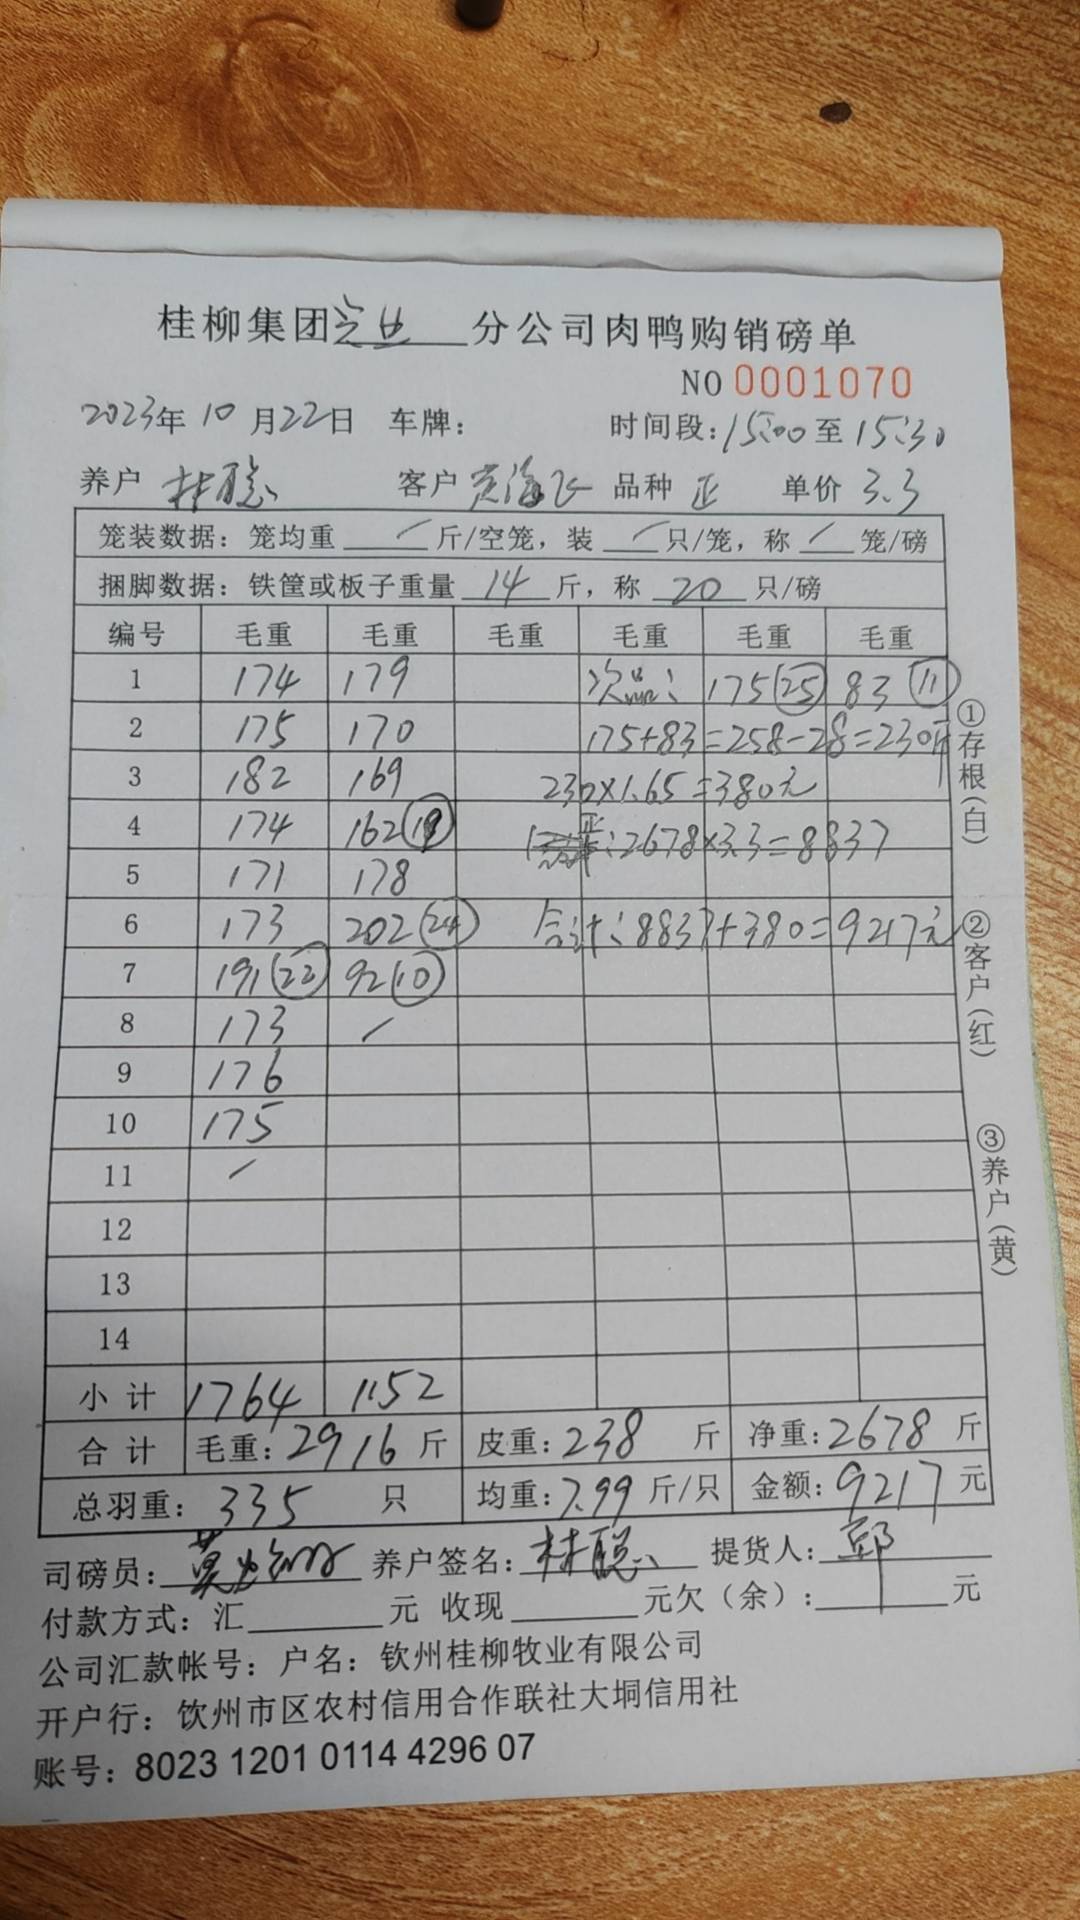 桂柳集团 分公司肉鸭购销磅单
NO 0001070
2023年 10月22日 车牌： 时间段：15:00至15:30
养户 林聪 客户 黄海飞 品种 正 单价 3.3
笼装数据：笼均重 / 斤/空笼，装 / 只/笼，称 / 笼/磅
捆脚数据：铁筐或板子重量 14 斤，称 20 只/磅
编号 毛重 毛重 毛重 毛重 毛重 毛重
1 174 179 次品： 175 (25) 83 (11)
2 175 170 175+83=258-28=230斤
3 182 169 230×1.65=380元
4 174 162 (19) 正：2678×3.3=8837
5 171 178
6 173 202 (24) 合计：8837+380=9217元
7 191 (22) 92 (10)
8 173 /
9 176
10 175
11 /
12
13
14
小计 1764 1152
合计 毛重：2916斤 皮重：238 斤 净重：2678 斤
总羽重：335 只 均重：7.99 斤/只 金额：9217元
司磅员： 养户签名：林聪 提货人：
付款方式：汇 元 收现 元欠（余）： 元
公司汇款帐号：户名：钦州桂柳牧业有限公司
开户行：饮州市区农村信用合作联社大垌信用社
账号：8023 1201 0114 4296 07
①存根（白）
②客户（红）
③养户（黄）